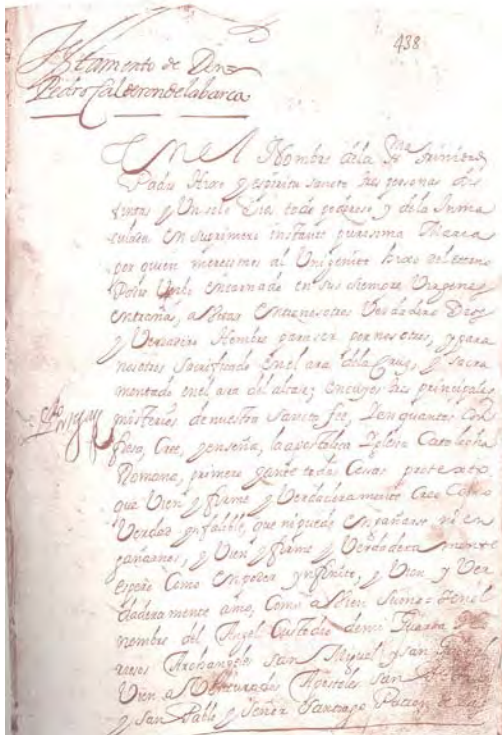 438
Testamento de Don
Pedro Calderon de la barca
En el Nombre de la SSma trinidad
Padre Hixo y espiritu sancto tres personas dis
tintas y Un solo Dios todo poderoso y de la Inma
culada en su primero instante purissima Maria
por quien merecimos al Unigenito hixo del eterno
Padre Verbo encarnado en sus siempre Virgenes
entrañas, a entre nosotros Verdadero Dios
y Verdadero Hombre para ser por nosotros, y para
nosotros Sacrificado en el ara de la Cruz, y sacra
mentado en el ara del altar; en cuyos tres principales
misterios de nuestra sancta fee, y en quantos Con
fiesa, Cree, y enseña, la apostolica Iglesia Catolica
Romana, primero y ante todas Cosas protexto
que Vien y firme y Verdaderamente Creo Como
Verdad ynfalible, que ni puede engañarse ni en
gañarnos, y Vien y firme y Verdadera mente
espero Como en poder ynfinito, y Vien y Ver
dadera mente amo, Como a Vien Sumo = en el
nombre del Angel Custodio de mi Guarda
Archangeles san Miguel y san Gabriel
Vien a Venturados Apostoles san Pedro
y san Pablo y Señor Santiago Patron de las